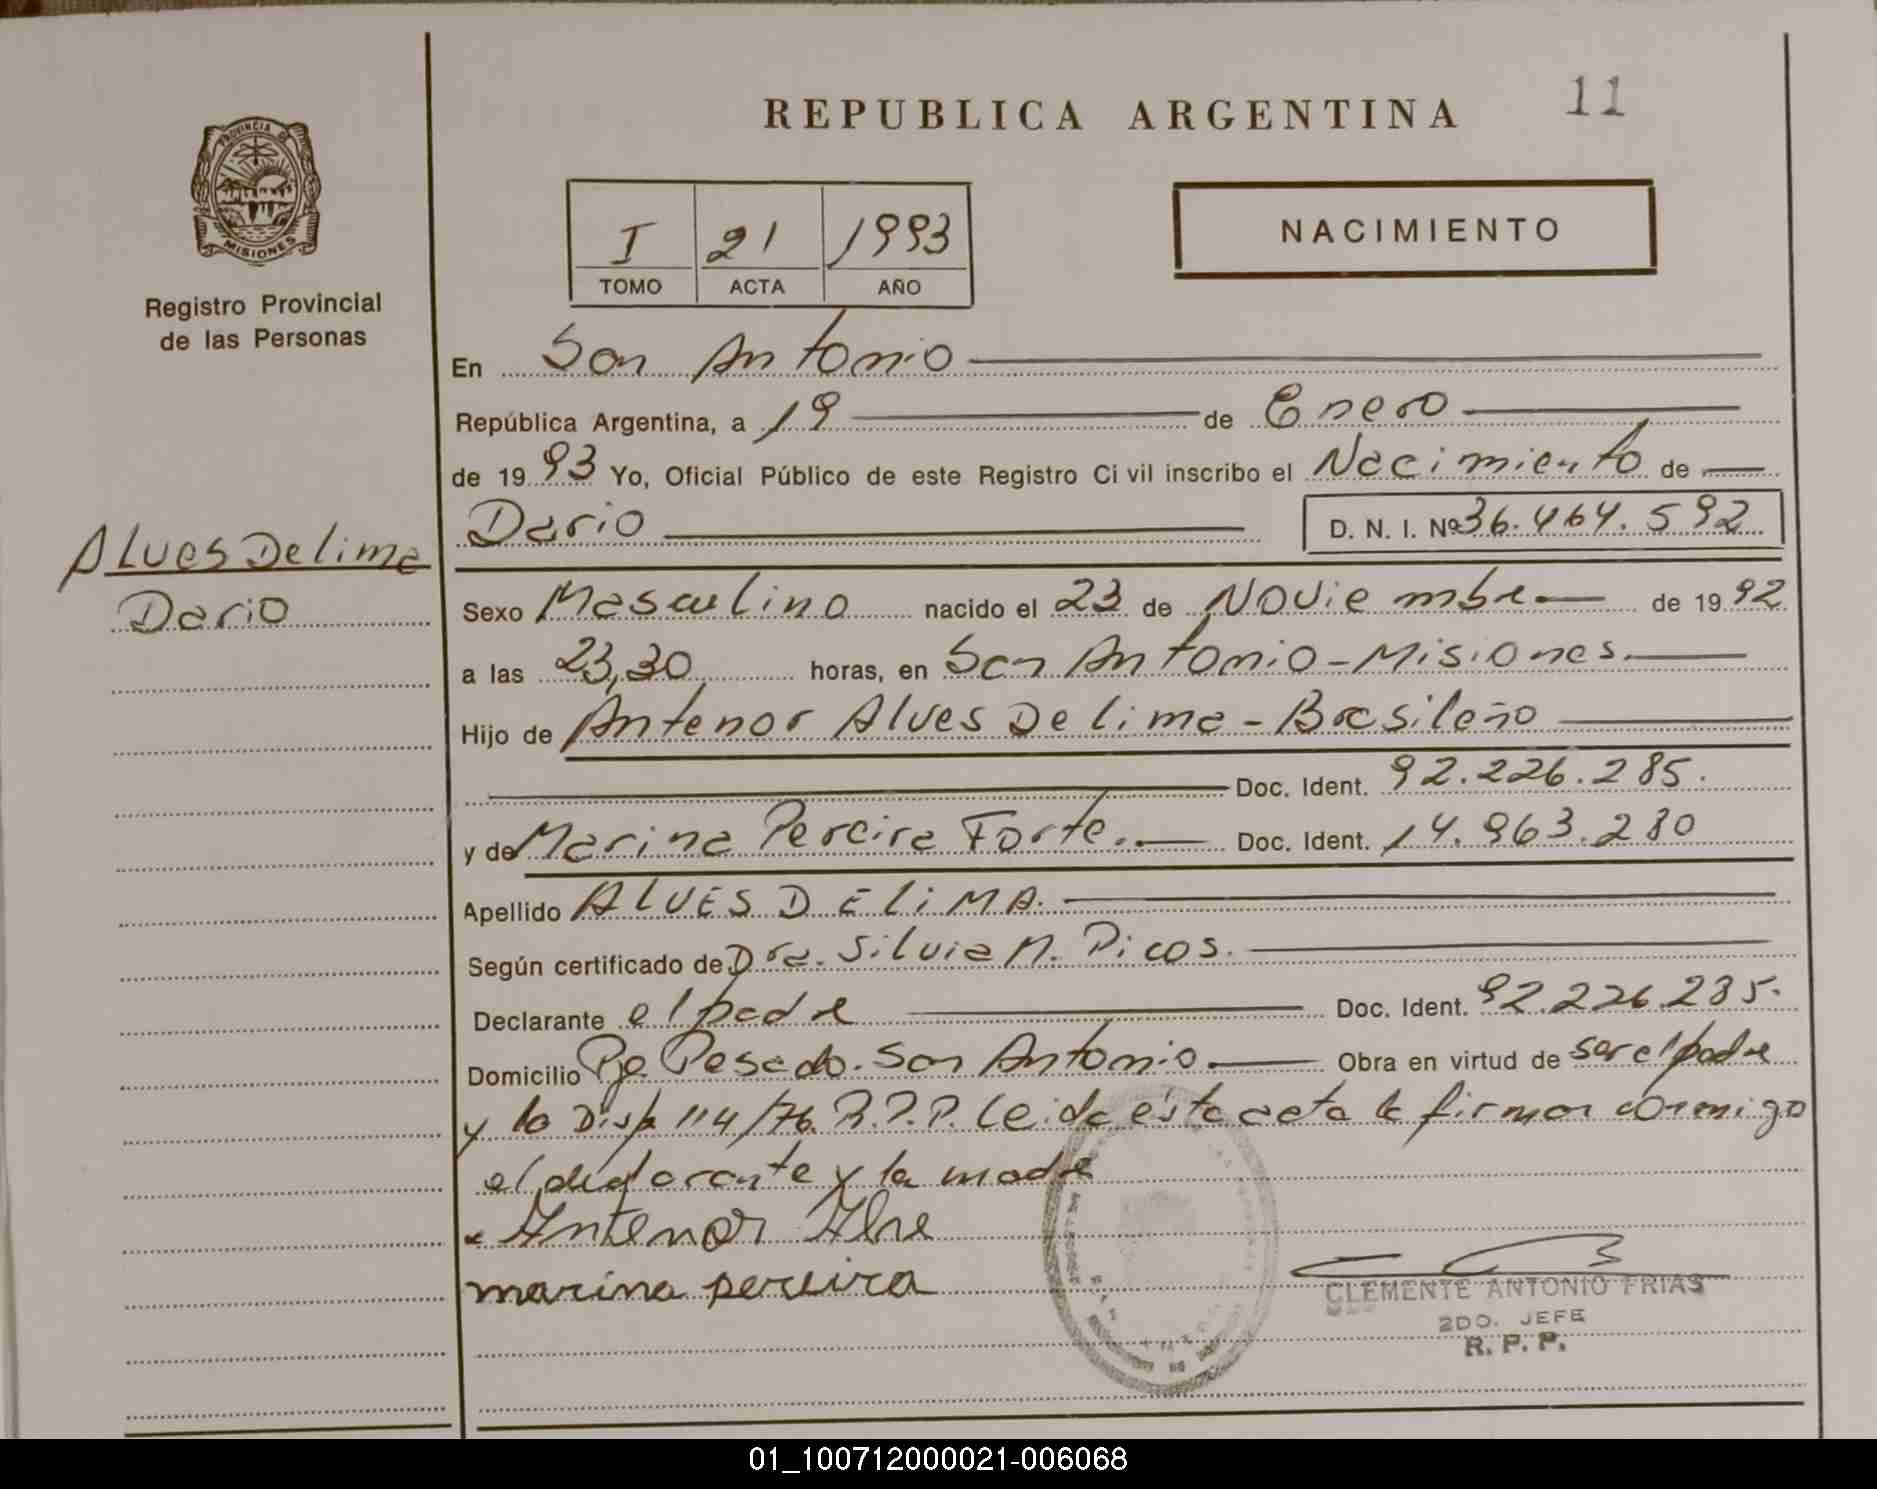 REPUBLICA ARGENTINA
11
PROVINCIA DE
MISIONES
Registro Provincial
de las Personas
I 21 1993
TOMO ACTA AÑO
NACIMIENTO
En San Antonio
República Argentina, a 19 de Enero
de 1993 Yo, Oficial Público de este Registro Civil inscribo el Nacimiento de
Dario D. N. I. Nº 36.464.592
Alves De lima
Dario
Sexo Masculino nacido el 23 de Noviembre de 1992
a las 23,30 horas, en San Antonio - Misiones.
Hijo de Antenor Alves De lima - Brasileño
Doc. Ident. 92.226.285.
y de Marina Pereira Forte. Doc. Ident. 14.963.280
Apellido ALVES DE LiMA.
Según certificado de Dra. Silvia N. Picos.
Declarante el padre Doc. Ident. 92.226.285.
Domicilio Pje Pesado. San Antonio Obra en virtud de ser el padre
y la Disp. 114/76. R.P.P. Leida esta acta la firman conmigo
el declarante y la madre
Antenor Alve
marina pereira
CLEMENTE ANTONIO FRIAS
2DO. JEFE
R. P. P.
01_100712000021-006068